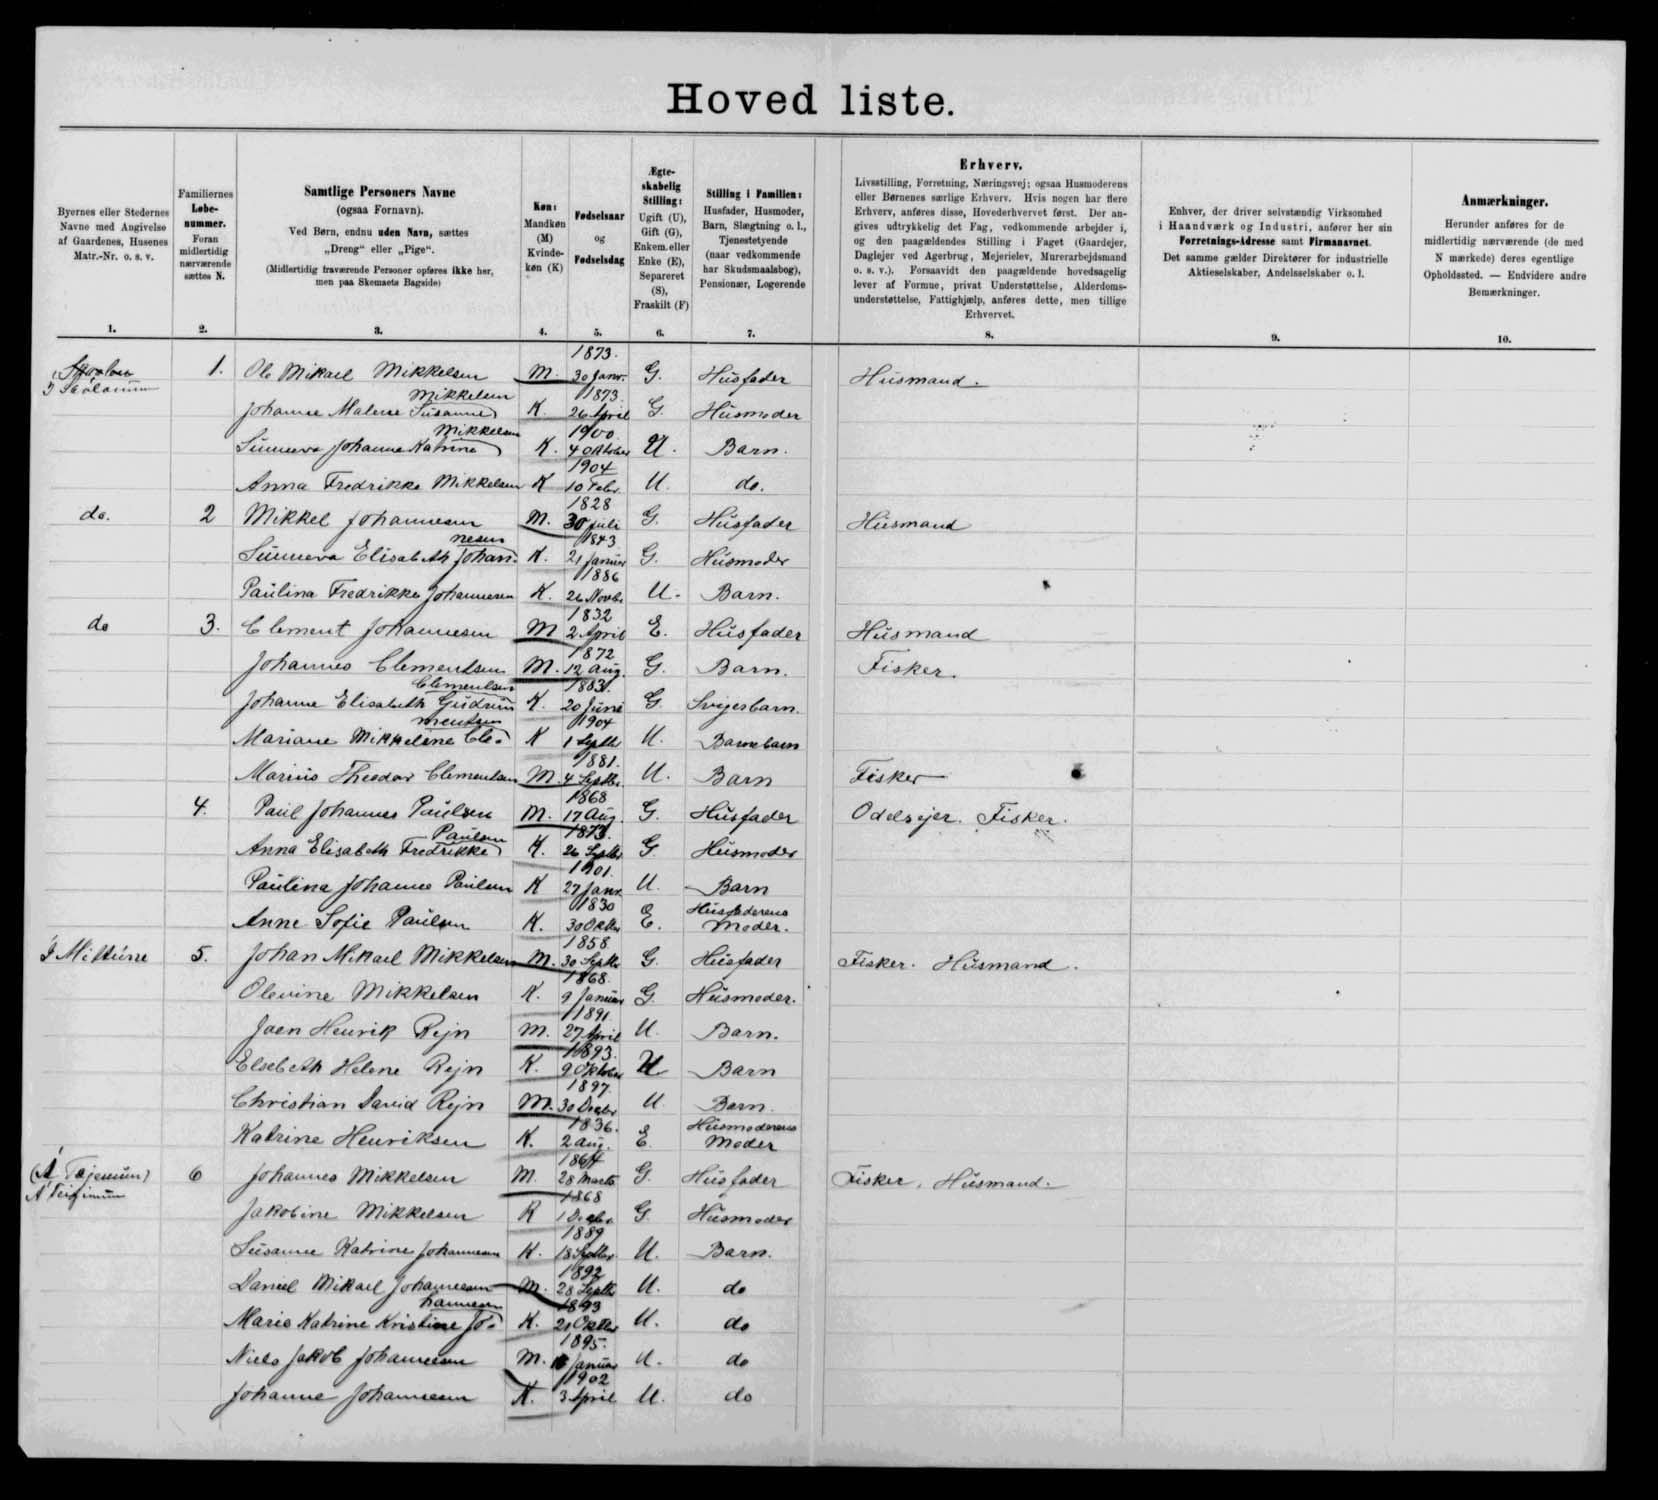 Hoved liste.
Byernes eller Stedernes Navne med Angivelse af Gaardenes, Husenes Matr.-Nr. o. s. v.
Familiernes Løbe-nummer. Foran midlertidig nærværende sættes N.
Samtlige Personers Navne
(ogsaa Fornavn).
Ved Børn, endnu uden Navn, sættes „Dreng“ eller „Pige“.
(Midlertidig fraværende Personer opføres ikke her, men paa Skemaets Bagside)
Køn: Mandkøn (M) Kvinde-køn (K)
Fødselsaar og Fødselsdag
Ægte-skabelig Stilling: Ugift (U), Gift (G), Enkem. eller Enke (E), Separeret (S), Fraskilt (F)
Stilling i Familien: Husfader, Husmoder, Barn, Slægtning o. l., Tjenestetyende (naar vedkommende har Skudsmaalsbog), Pensionær, Logerende
Erhverv.
Livsstilling, Forretning, Næringsvej; ogsaa Husmoderens eller Børnenes særlige Erhverv. Hvis nogen har flere Erhverv, anføres disse, Hovederhvervet først. Der an-gives udtrykkelig det Fag, vedkommende arbejder i, og den paagældendes Stilling i Faget (Gaardejer, Daglejer ved Agerbrug, Mejerielev, Murerarbejdsmand o. s. v.). Forsaavidt den paagældende hovedsagelig lever af Formue, privat Understøttelse, Alderdoms-understøttelse, Fattighjælp, anføres dette, men tillige Erhvervet.
Enhver, der driver selvstændig Virksomhed i Haandværk og Industri, anfører her sin Forretnings-Adresse samt Firmanavnet. Det samme gælder Direktører for industrielle Aktieselskaber, Andelsselskaber o. l.
Anmærkninger.
Herunder anføres de for midlertidig nærværende (de med N mærkede) deres egentlige Opholdssted. — Endvidere andre Bemærkninger.
1. 2. 3. 4. 5. 6. 7. 8. 9. 10.
1. Ole Mikael Mikkelsen M. 1873. 30 Janr. G. Husfader Husmand.
Johanne Malene Susanne Mikkelsen K. 1873. 26 April G. Husmoder
Sunneva Johanne Katrine Mikkelsen K. 1900. 4 Oktober U. Barn.
Anna Fredrikke Mikkelsen K 1904 10 Febr. U. do.
do. 2 Mikkel Johannesen M. 1828 30 Juli G. Husfader Husmand
Sunneva Elisabeth Johannesen K. 1843 21 Januar G. Husmoder
Paulina Fredrikke Johannesen K. 1886 26 Novbr. U. Barn.
do 3. Clement Johannesen M 1832 2 April E. Husfader Husmand
Johannes Clementsen M. 1872 12 Aug. G. Barn. Fisker.
Johanne Elisabeth Gudrun Clementsen K. 1883. 20 Juni G. Svigerbarn.
Mariane Mikkeline Clementsen K 1904 1 Septbr U. Barnebarn
Marius Theodor Clementsen M. 1881. 4 Septbr. U. Barn Fisker
4. Paul Johannes Paulsen M. 1868 17 Aug. G. Husfader Odelsejer. Fisker.
Anna Elisabeth Fredrikke Paulsen K. 1873. 26 Septbr G. Husmoder
Paulina Johanne Paulsen K 1901. 27 Janr. U. Barn
Anne Sofie Paulsen K. 1830 30 Oktbr E. Husfaderens Moder.
Í Miðtúne 5. Johan Mikael Mikkelsen M. 1858 30 Septbr G. Husfader Fisker. Husmand.
Olevine Mikkelsen K. 1868. 9 Januar G. Husmoder.
Joen Henrik Rejn M. 1891. 27 April U. Barn.
Elsebeth Helene Rejn K. 1893. 9 Oktober U Barn
Christian David Rejn M. 1897. 30 Decbr U. Barn.
Katrine Henriksen K. 1836. 2 Aug. E. Husmoderens Moder
6 Johannes Mikkelsen M. 1864 28 Marts G. Husfader Fisker, Husmand.
Jakobine Mikkelsen K 1868 1 Decbr. G. Husmoder
Susanne Katrine Johannesen K. 1889 18 Septbr. U. Barn.
Daniel Mikael Johannesen M. 1892 28 Septbr U. do
Marie Katrine Kristine Johannesen K. 1893 21 Oktbr U. do
Niels Jakob Johannesen M. 1895. Januar U. do
Johanne Johannesen K. 1902 3 April U. do